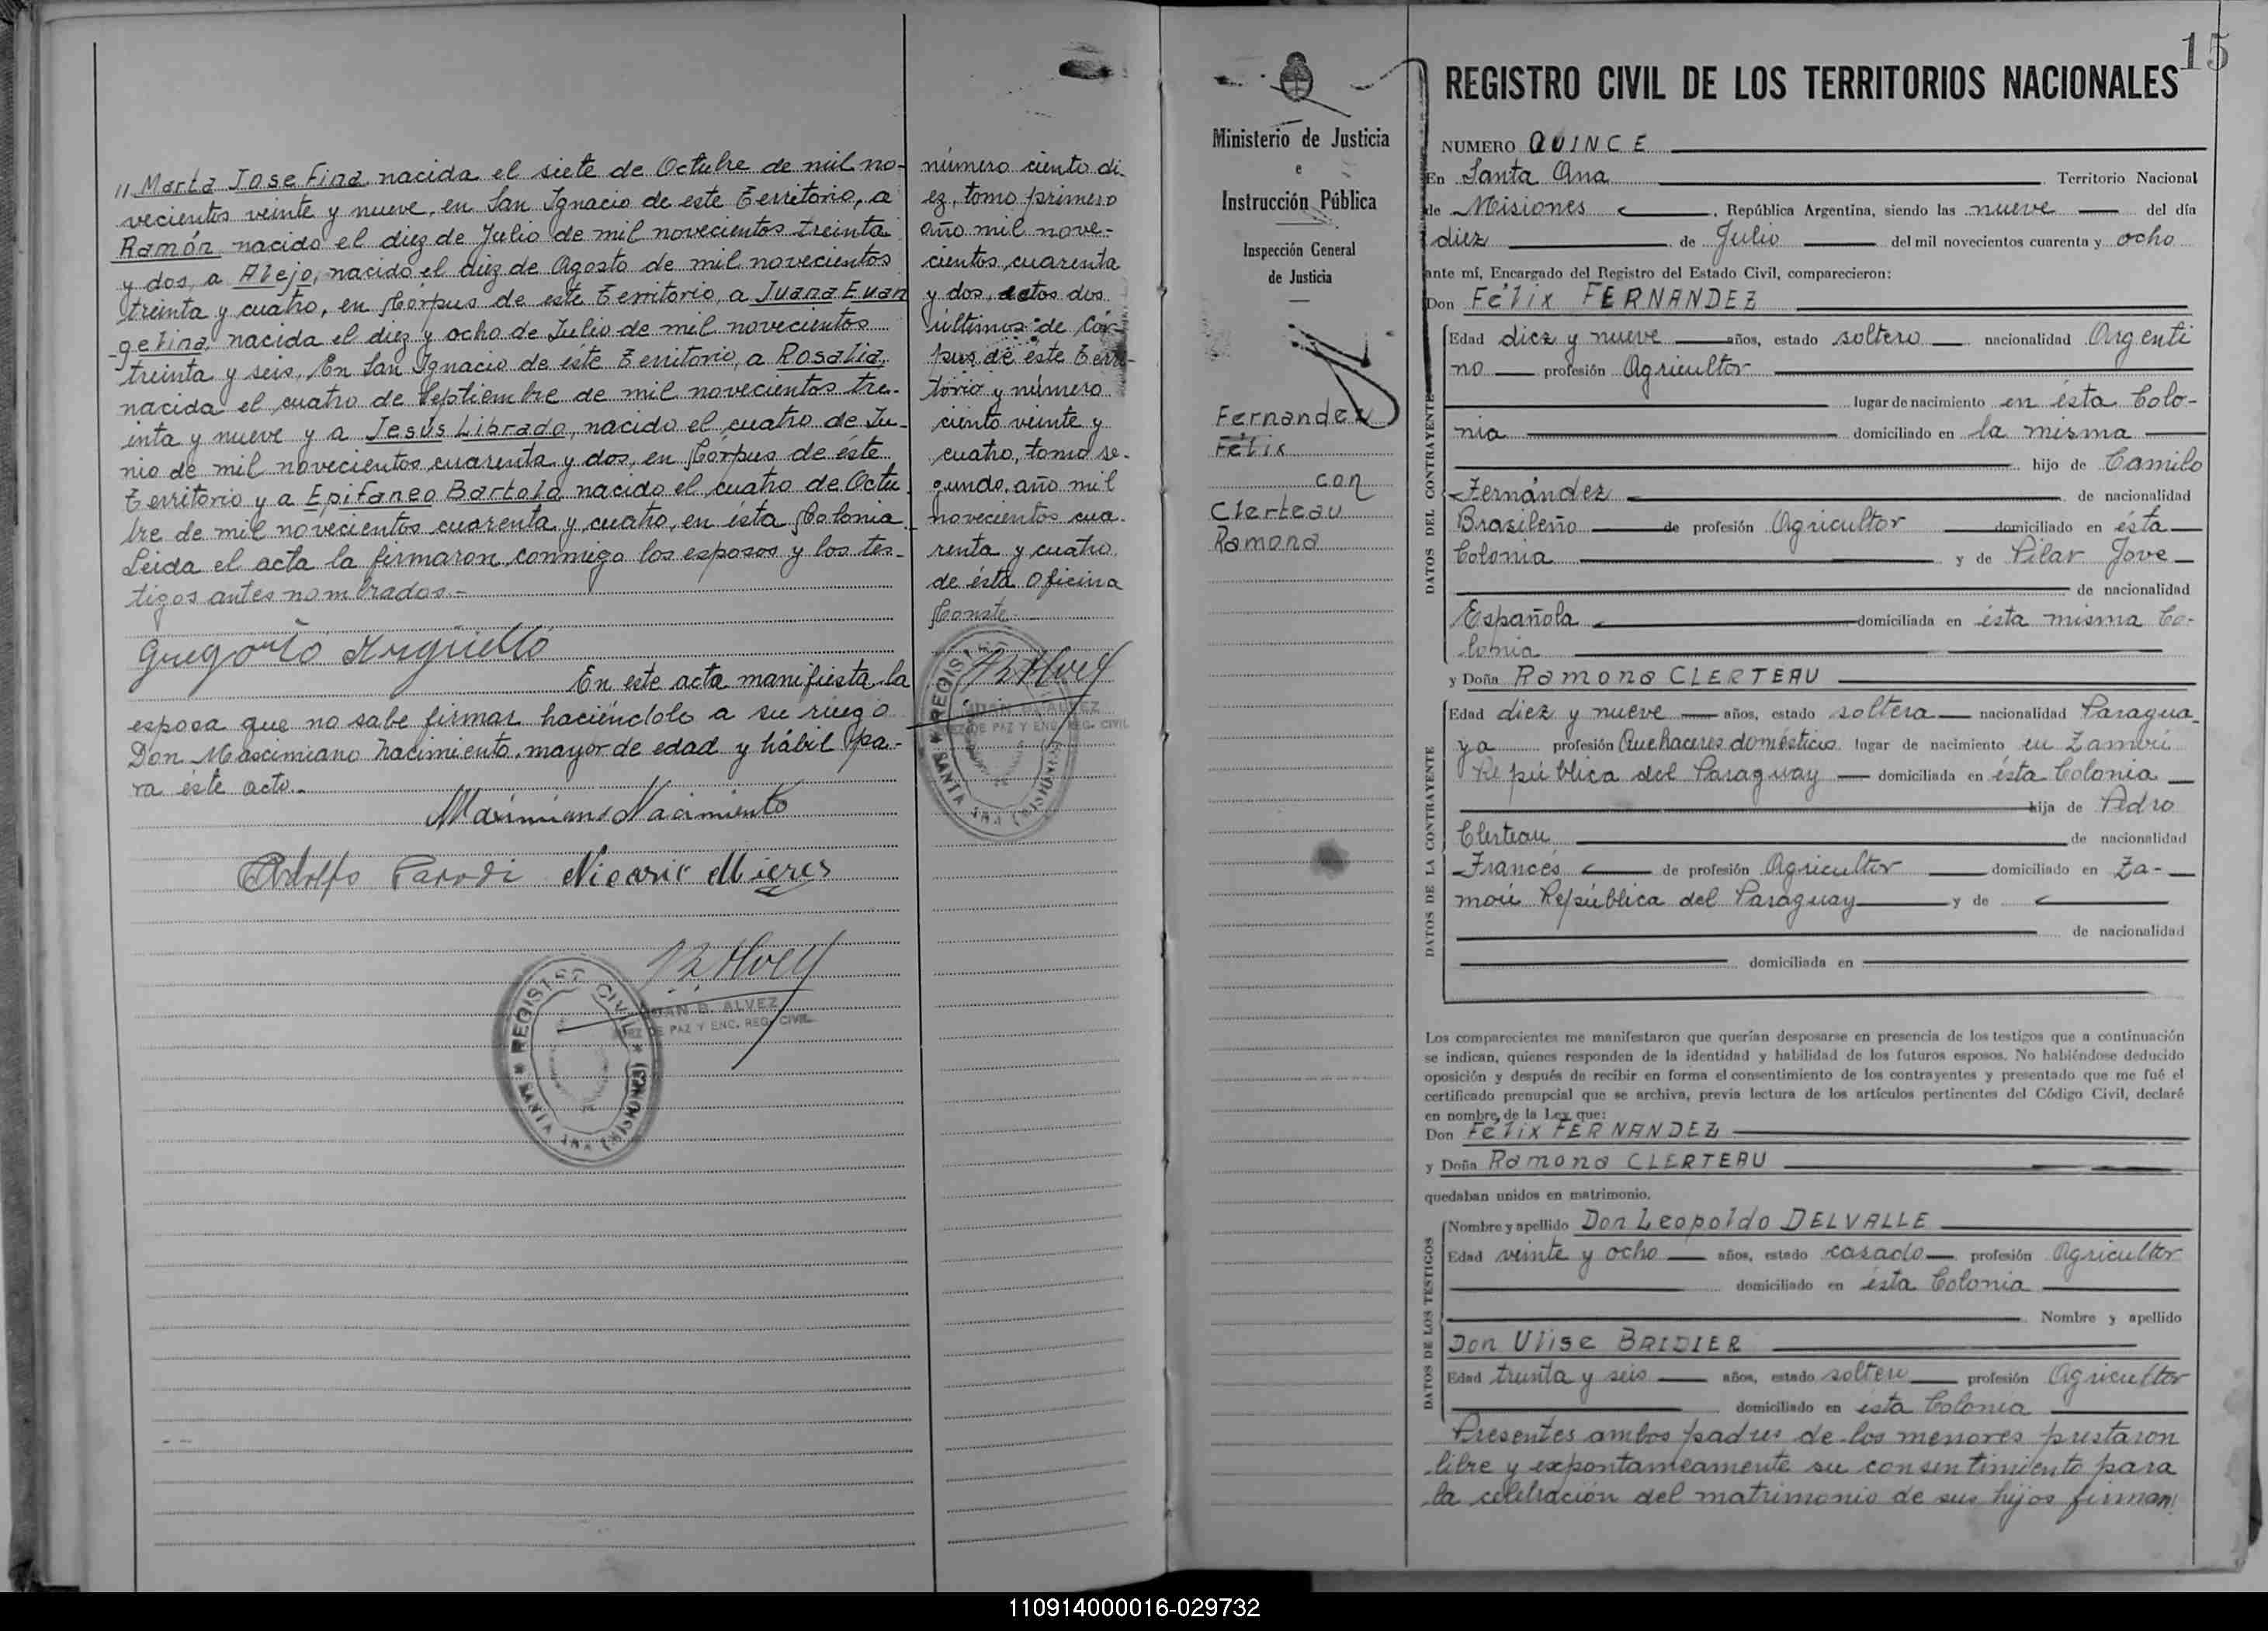 " Marta Josefina, nacida el siete de Octubre de mil no-
vecientos veinte y nueve, en San Ignacio de este Territorio, a
Ramón, nacido el diez de Julio de mil novecientos treinta
y dos, a Alejo, nacido el diez de Agosto de mil novecientos
treinta y cuatro, en Córpus de este Territorio, a Juana Evan
gelina, nacida el diez y ocho de Julio de mil novecientos
treinta y seis, En San Ignacio de este Territorio, a Rosalia,
nacida el cuatro de Septiembre de mil novecientos tre-
inta y nueve y a Jesús Librado, nacido el cuatro de Ju-
nio de mil novecientos cuarenta y dos, en Córpus de éste
Territorio y a Epifaneo Bartolo, nacido el cuatro de Octu
bre de mil novecientos cuarenta y cuatro, en ésta Colonia.
Leida el acta la firmaron conmigo los esposos y los tes-
tigos antes nombrados.-
Gregorio Argüello
En este acta manifiesta la
esposa que no sabe firmar haciéndolo a su ruego
Don Mascimiano Nacimiento, mayor de edad y hábil pa-
ra éste acto.-
Maximiano Nacimiento
Adolfo Parodi Nicasio Mieres
REGISTRO CIVIL
SANTA ANA (MISIONES)
JUAN B. ALVEZ
JUEZ DE PAZ Y ENC. REG. CIVIL
número ciento di-
ez, tomo primero
año mil nove-
cientos cuarenta
y dos, estos dos
últimos de Cór-
pus de éste Terri-
torio y número
ciento veinte y
cuatro, tomo se-
gundo, año mil
novecientos cua-
renta y cuatro
de ésta Oficina
Conste.
REGISTRO
SANTA ANA (MISIONES)
JUAN B. ALVEZ
JUEZ DE PAZ Y ENC. REG. CIVIL
Ministerio de Justicia
e
Instrucción Pública
Inspección General
de Justicia
Fernandez
Félix
con
Clerteau
Ramona
15
REGISTRO CIVIL DE LOS TERRITORIOS NACIONALES
NUMERO QUINCE
En Santa Ana Territorio Nacional
de Misiones, República Argentina, siendo las nueve del día
diez de Julio del mil novecientos cuarenta y ocho
ante mí, Encargado del Registro del Estado Civil, comparecieron:
Don Félix FERNANDEZ
DATOS DEL CONTRAYENTE
Edad diez y nueve años, estado soltero nacionalidad Argenti
no profesión Agricultor
lugar de nacimiento en ésta Colo-
nia domiciliado en la misma
hijo de Camilo
Fernández de nacionalidad
Brasileño de profesión Agricultor domiciliado en ésta
Colonia y de Pilar Jove
de nacionalidad
Española domiciliada en ésta misma Co-
lonia
y Doña Ramona CLERTEAU
DATOS DE LA CONTRAYENTE
Edad diez y nueve años, estado soltera nacionalidad Paragua-
ya profesión Quehaceres domésticos lugar de nacimiento en
República del Paraguay domiciliada en ésta Colonia
hija de Pedro
Clerteau de nacionalidad
Francés de profesión Agricultor domiciliado en Za-
República del Paraguay y de
de nacionalidad
domiciliada en
Los comparecientes me manifestaron que querían desposarse en presencia de los testigos que a continuación
se indican, quienes responden de la identidad y habilidad de los futuros esposos. No habiéndose deducido
oposición y después de recibir en forma el consentimiento de los contrayentes y presentado que me fué el
certificado prenupcial que se archiva, previa lectura de los artículos pertinentes del Código Civil, declaré
en nombre de la Ley que:
Don Félix FERNANDEZ
y Doña Ramona CLERTEAU
quedaban unidos en matrimonio.
DATOS DE LOS TESTIGOS
Nombre y apellido Don Leopoldo DELVALLE
Edad veinte y ocho años, estado casado profesión Agricultor
domiciliado en ésta Colonia
Nombre y apellido
Don Ulise BRIDIER
Edad treinta y seis años, estado soltero profesión Agricultor
domiciliado en ésta Colonia
Presentes ambos padres de los menores prestaron
libre y expontameamente su consentimiento para
la celebración del matrimonio de sus hijos firman
110914000016-029732